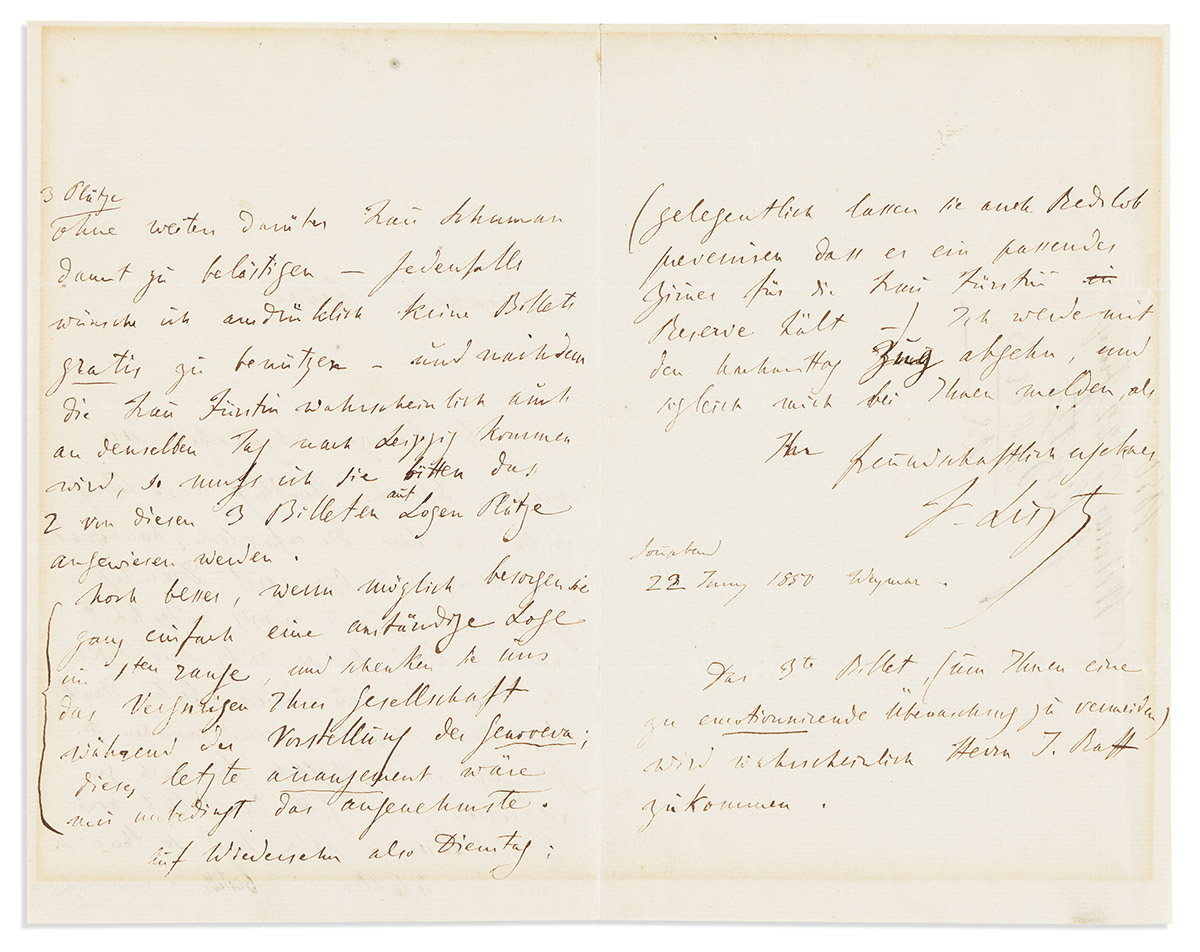 3 Plätze
ohne weiters darüber Frau Schuman
damit zu belästigen — jedenfalls
wünsche ich ausdrüklich keine Billets
gratis zu benützen — und nachdem
die Frau Fürstin wahrscheinlich auch
an denselben Tag nach Leipzig kommen
wird, so muss ich Sie bitten das
2 von diesen 3 Billeten auf Logen Plätze
angewiesen werden.
Noch besser, wenn möglich besorgen Sie
ganz einfach eine anständige Loge
im 1ten Range, und schenken Sie uns
das Vergnügen Ihrer Gesellschaft
während der Vorstellung der Genoveva;
dieses letzte arrangement wäre
mir unbedingt das angenehmste.
Auf Wiedersehn also Dienstag;
(gelegentlich lassen Sie auch Redslob
prevenieren dass er ein passendes
Zimer für die Frau Fürstin in
Reserve hält —) Ich werde mit
den Nachmittag Zug abgehn, und
sogleich mich bei Ihnen melden, als
Ihr freundschaftlich ergebner
F. Liszt
Sonabend
22 Juny 1850 Weymar.
Das 3te Billet, (um Ihnen eine
zu emotionnirende Überraschung zu vermeiden)
wird wahrscheinlich Herrn J. Raff
zukommen.